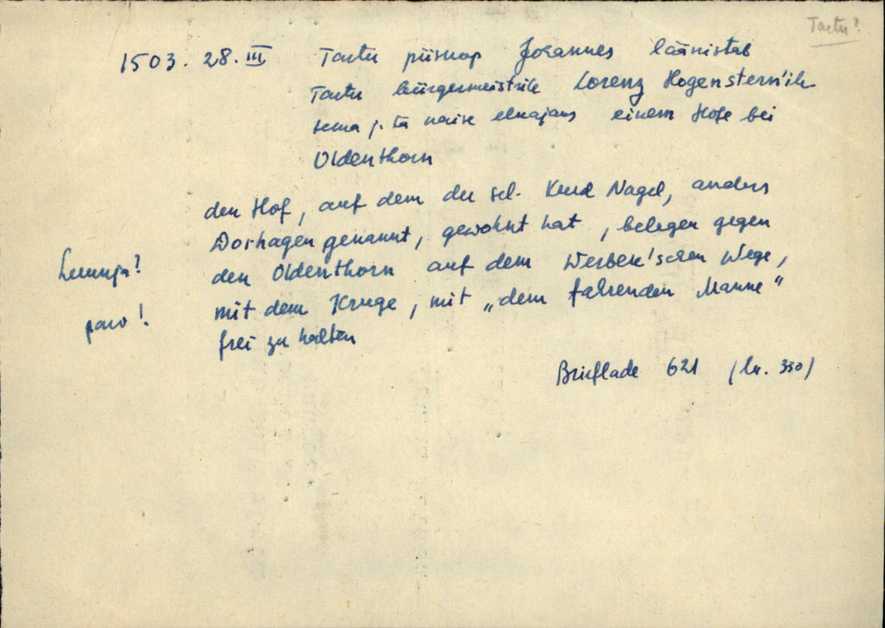 Tartu?
1503. 28. III Tartu piiskop Johannes läänistab
Tartu bürgermeistrile Lorenz Hogenstern'ile
tema j. ta naise eluajans einem Hofe bei
Oldenthorn
den Hof, auf dem der sel. Kurd Nagel, anders
Dorhagen genannt, gewohnt hat, belegen gegen
Luunja? den Oldenthorn auf dem Werbek'schen Wege,
mit dem Kruge, mit „dem fahrenden Manne"
parv! frei zu halten
Brieflade 621 (lk. 350)